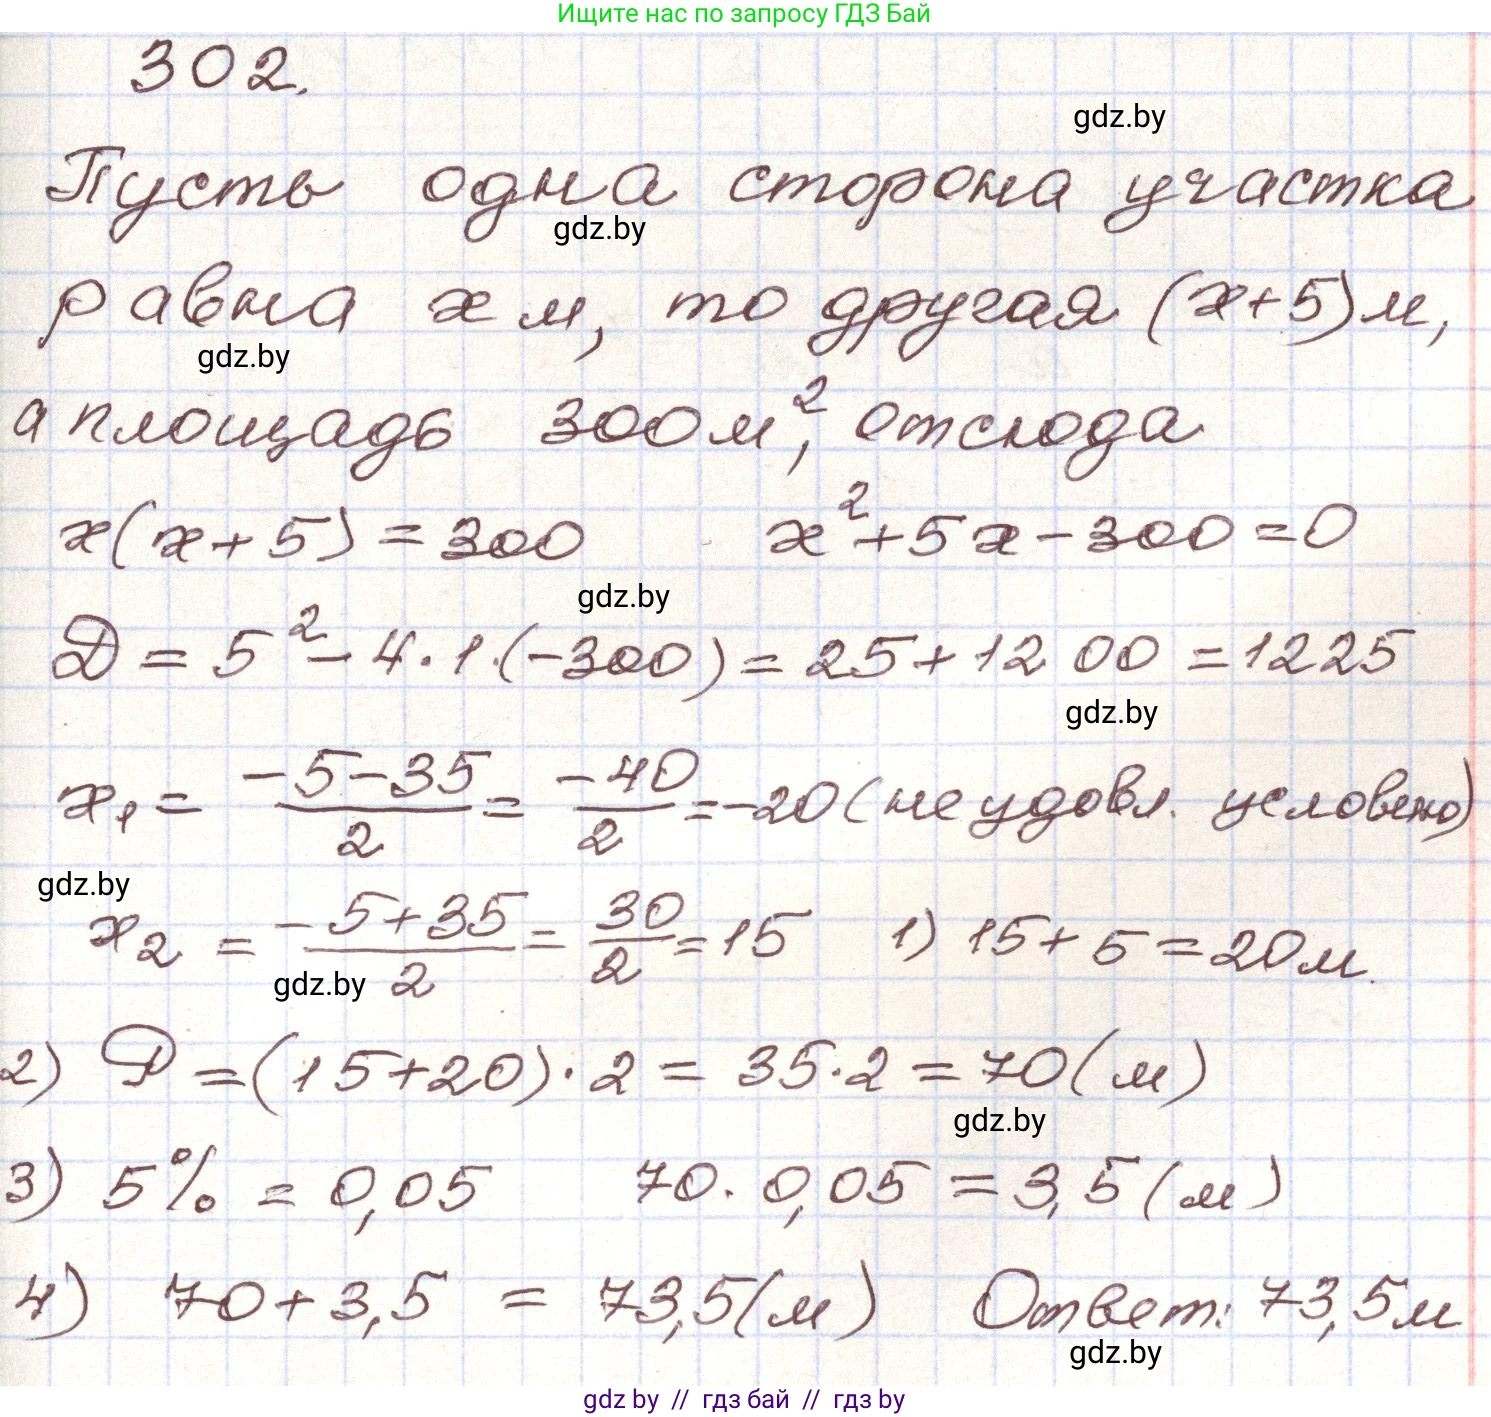 Ищите нас по запросу ГДЗ Бай
302.
gdz.by
Пусть одна сторона участка
gdz.by
равна x м, то другая (x+5) м,
gdz.by
а площадь 300 м², отсюда
x(x+5)=300 x²+5x-300=0
gdz.by
D = 5² - 4·1·(-300) = 25+1200 = 1225
gdz.by
x₁ = (-5-35)/2 = -40/2 = -20 (не удовл. условию)
gdz.by
x₂ = (-5+35)/2 = 30/2 = 15 1) 15+5=20 м.
gdz.by
2) P = (15+20)·2 = 35·2 = 70 (м)
gdz.by
3) 5% = 0,05 70·0,05 = 3,5 (м)
4) 70+3,5 = 73,5 (м) Ответ: 73,5 м
gdz.by
gdz.by // гдз бай // гдз by